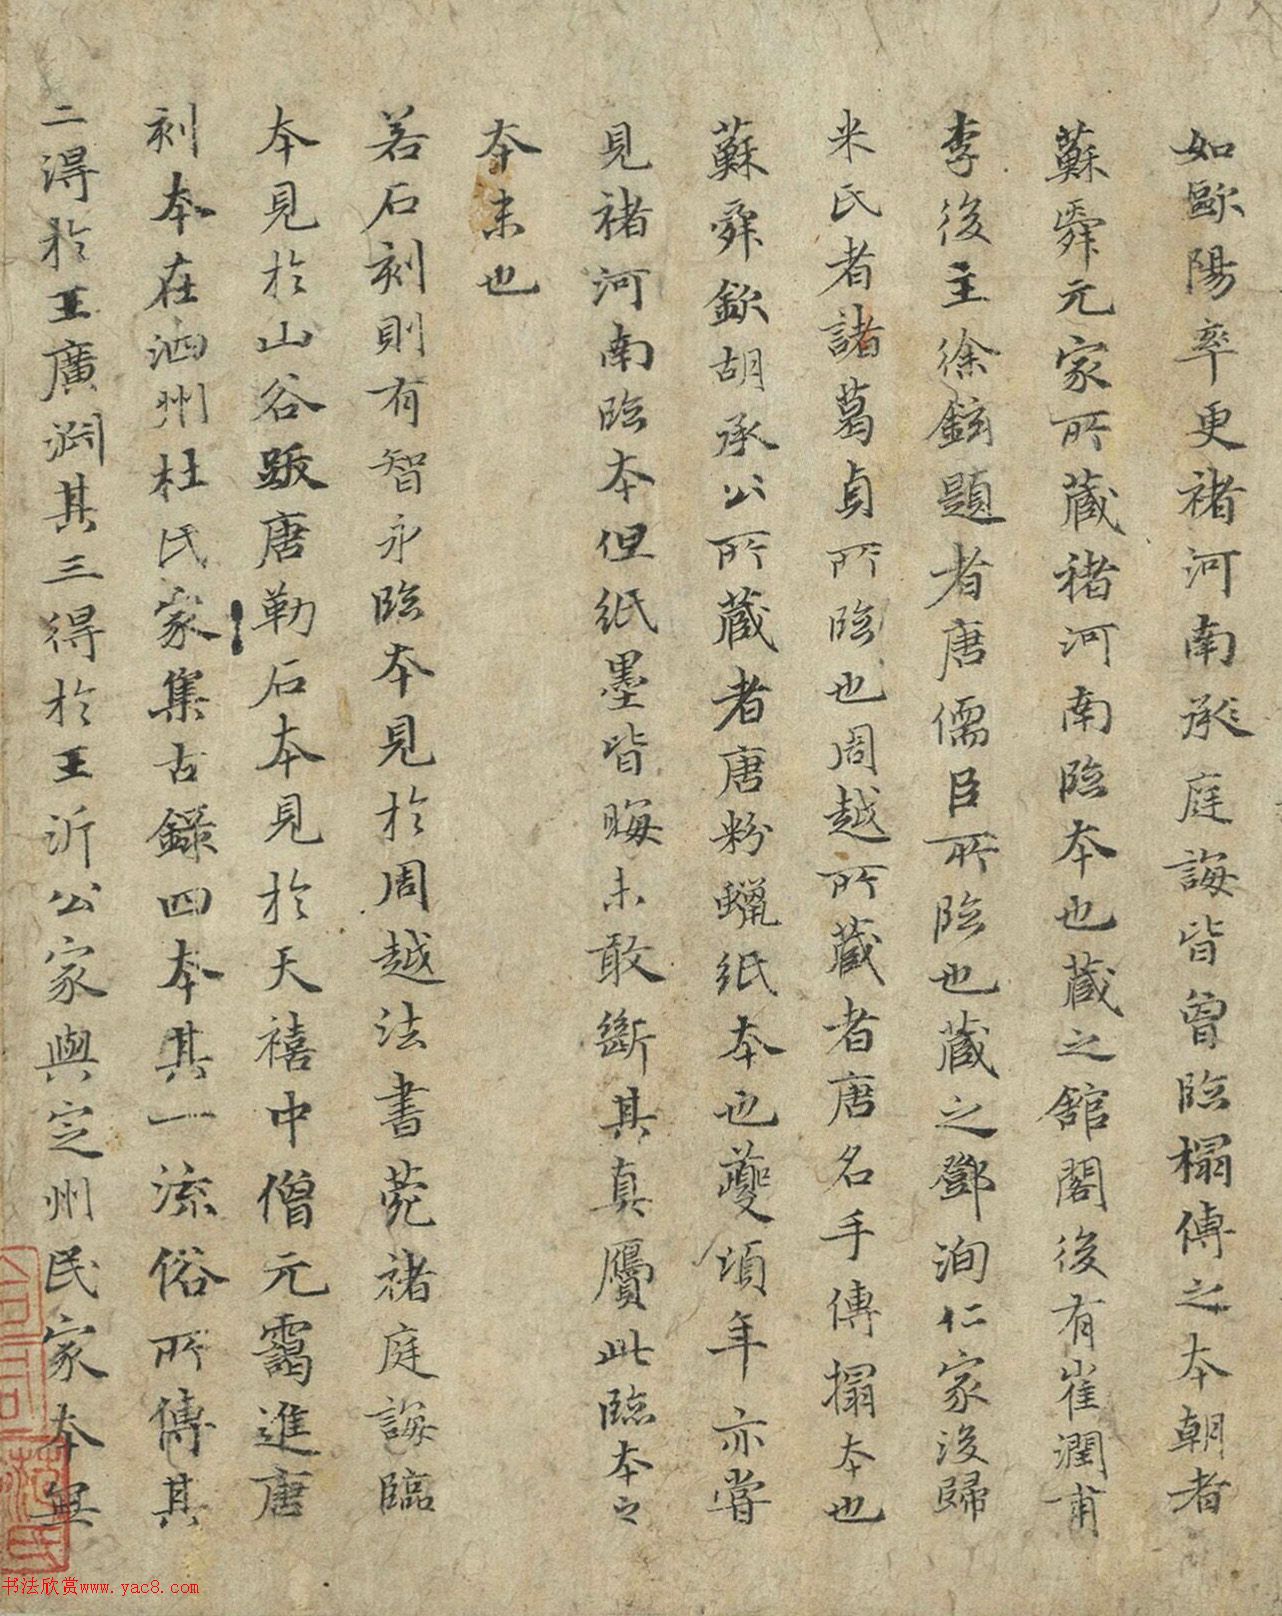 如歐陽率更褚河南承庭誨皆曾臨搨傳之本朝者
蘇舜元家所藏褚河南臨本也藏之館閣後有崔潤甫
李後主徐鉉題者唐儒臣所臨也藏之鄧洵仁家後歸
米氏者諸葛貞所臨也周越所藏者唐名手傳搨本也
蘇舜欽胡承公所藏者唐粉蠟紙本也夔頃年亦嘗
見褚河南臨本但紙墨皆晦未敢斷其真贗此臨本之
本末也
若石刻則有智永臨本見於周越法書苑褚庭誨臨
本見於山谷跋唐勒石本見於天禧中僧元靄進唐
刻本在泗州杜氏家集古錄四本其一流俗所傳其
二得於王廣淵其三得於王沂公家與定州民家本無
书法欣赏www.yac8.com